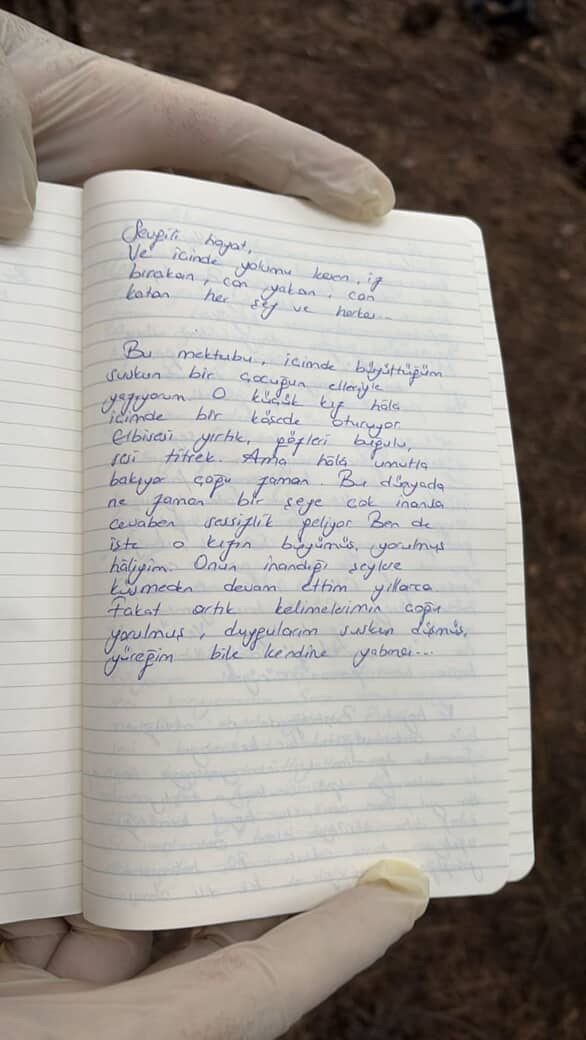 Sevgili hayat,
Ve içinde yolumu kesen, iz
bırakan, can yakan, can
katan her şey ve herkes...
Bu mektubu, içimde büyüttüğüm
suskun bir çocuğun elleriyle
yazıyorum. O küçük kız hâlâ
içimde bir köşede oturuyor.
Elbisesi yırtık, gözleri buğulu,
sesi titrek. Ama hâlâ umutla
bakıyor çoğu zaman. Bu dünyada
ne zaman bir şeye çok inansa
cevaben sessizlik geliyor. Ben de
işte o kızın büyümüş, yorulmuş
hâliyim. Onun inandığı şeylere
küsmeden devam ettim yıllarca.
Fakat artık kelimelerimin çoğu
yorulmuş, duygularım suskun düşmüş,
yüreğim bile kendine yabancı...